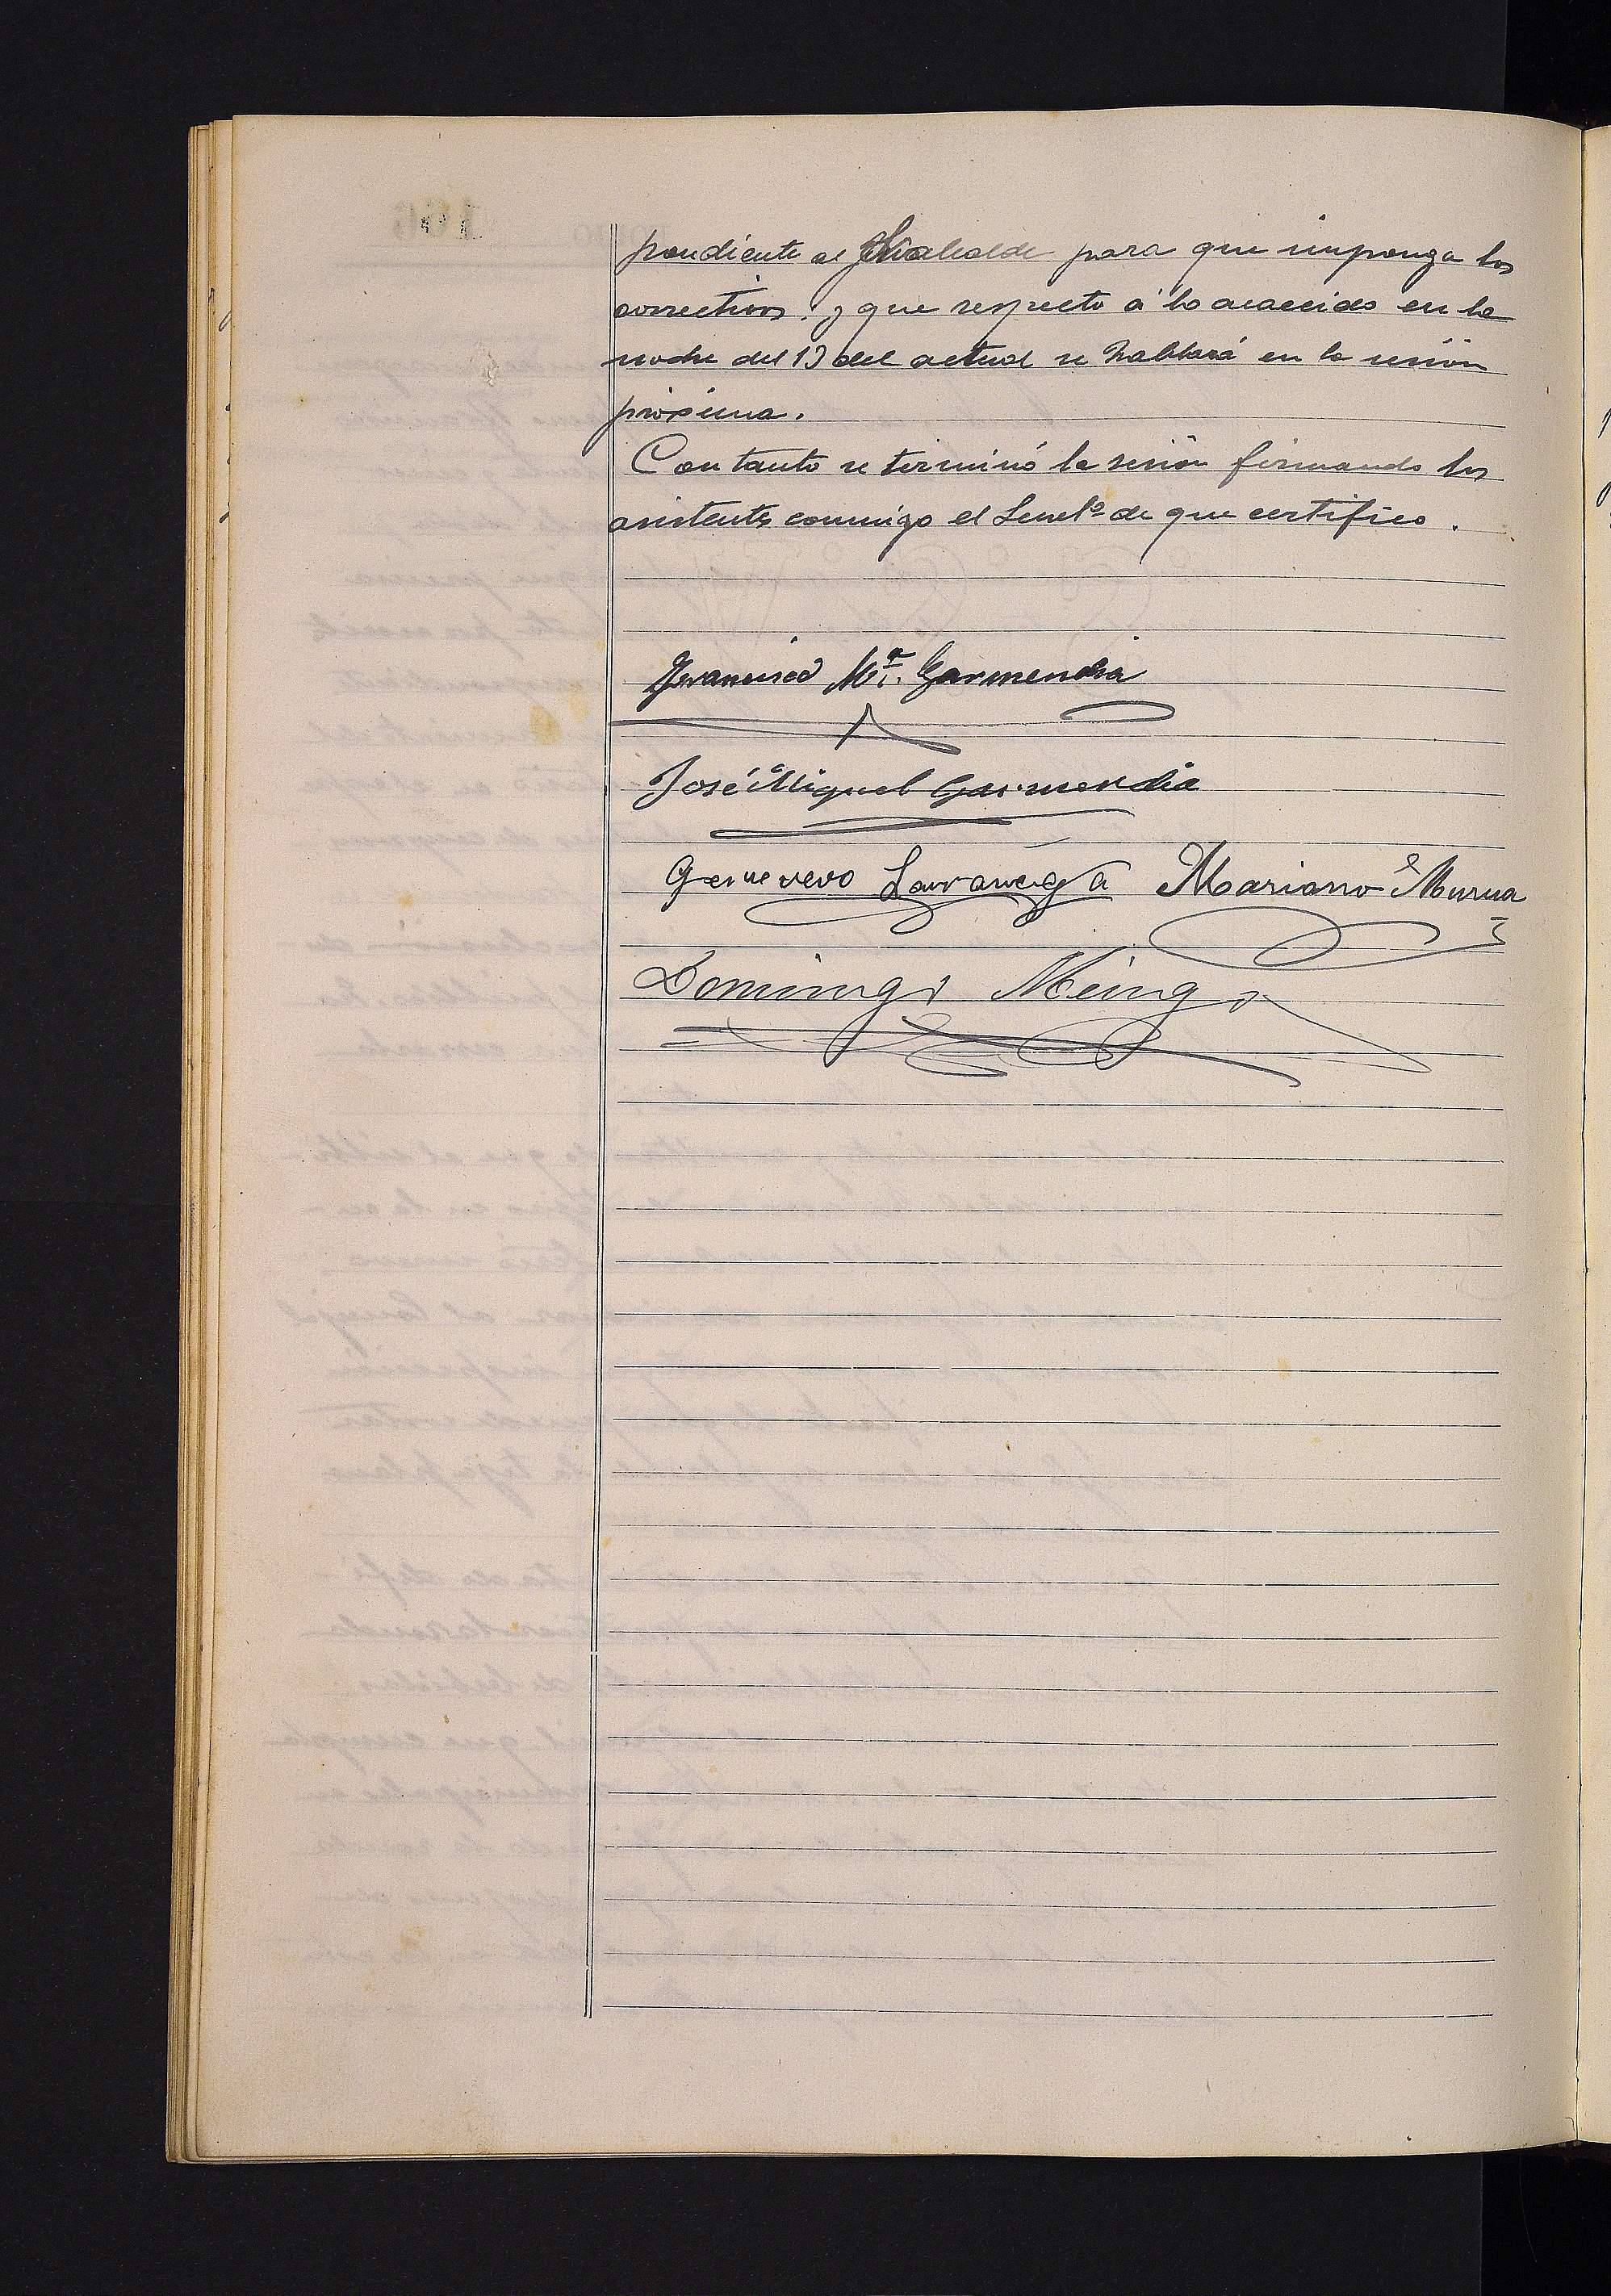 pondiente al Sr. Alcalde para que imponga los
correctivos. y que respecto á lo acaecido en la
noche del 13 del actual se hablará en la sesión
próxima.
Con tanto se terminó la sesión firmando los
asistentes conmigo el Secretº de que certifico.
Francisco Mª. Garmendia
José Miguel Garmendia
Genaro Larrañaga Mariano Murua
Domingo